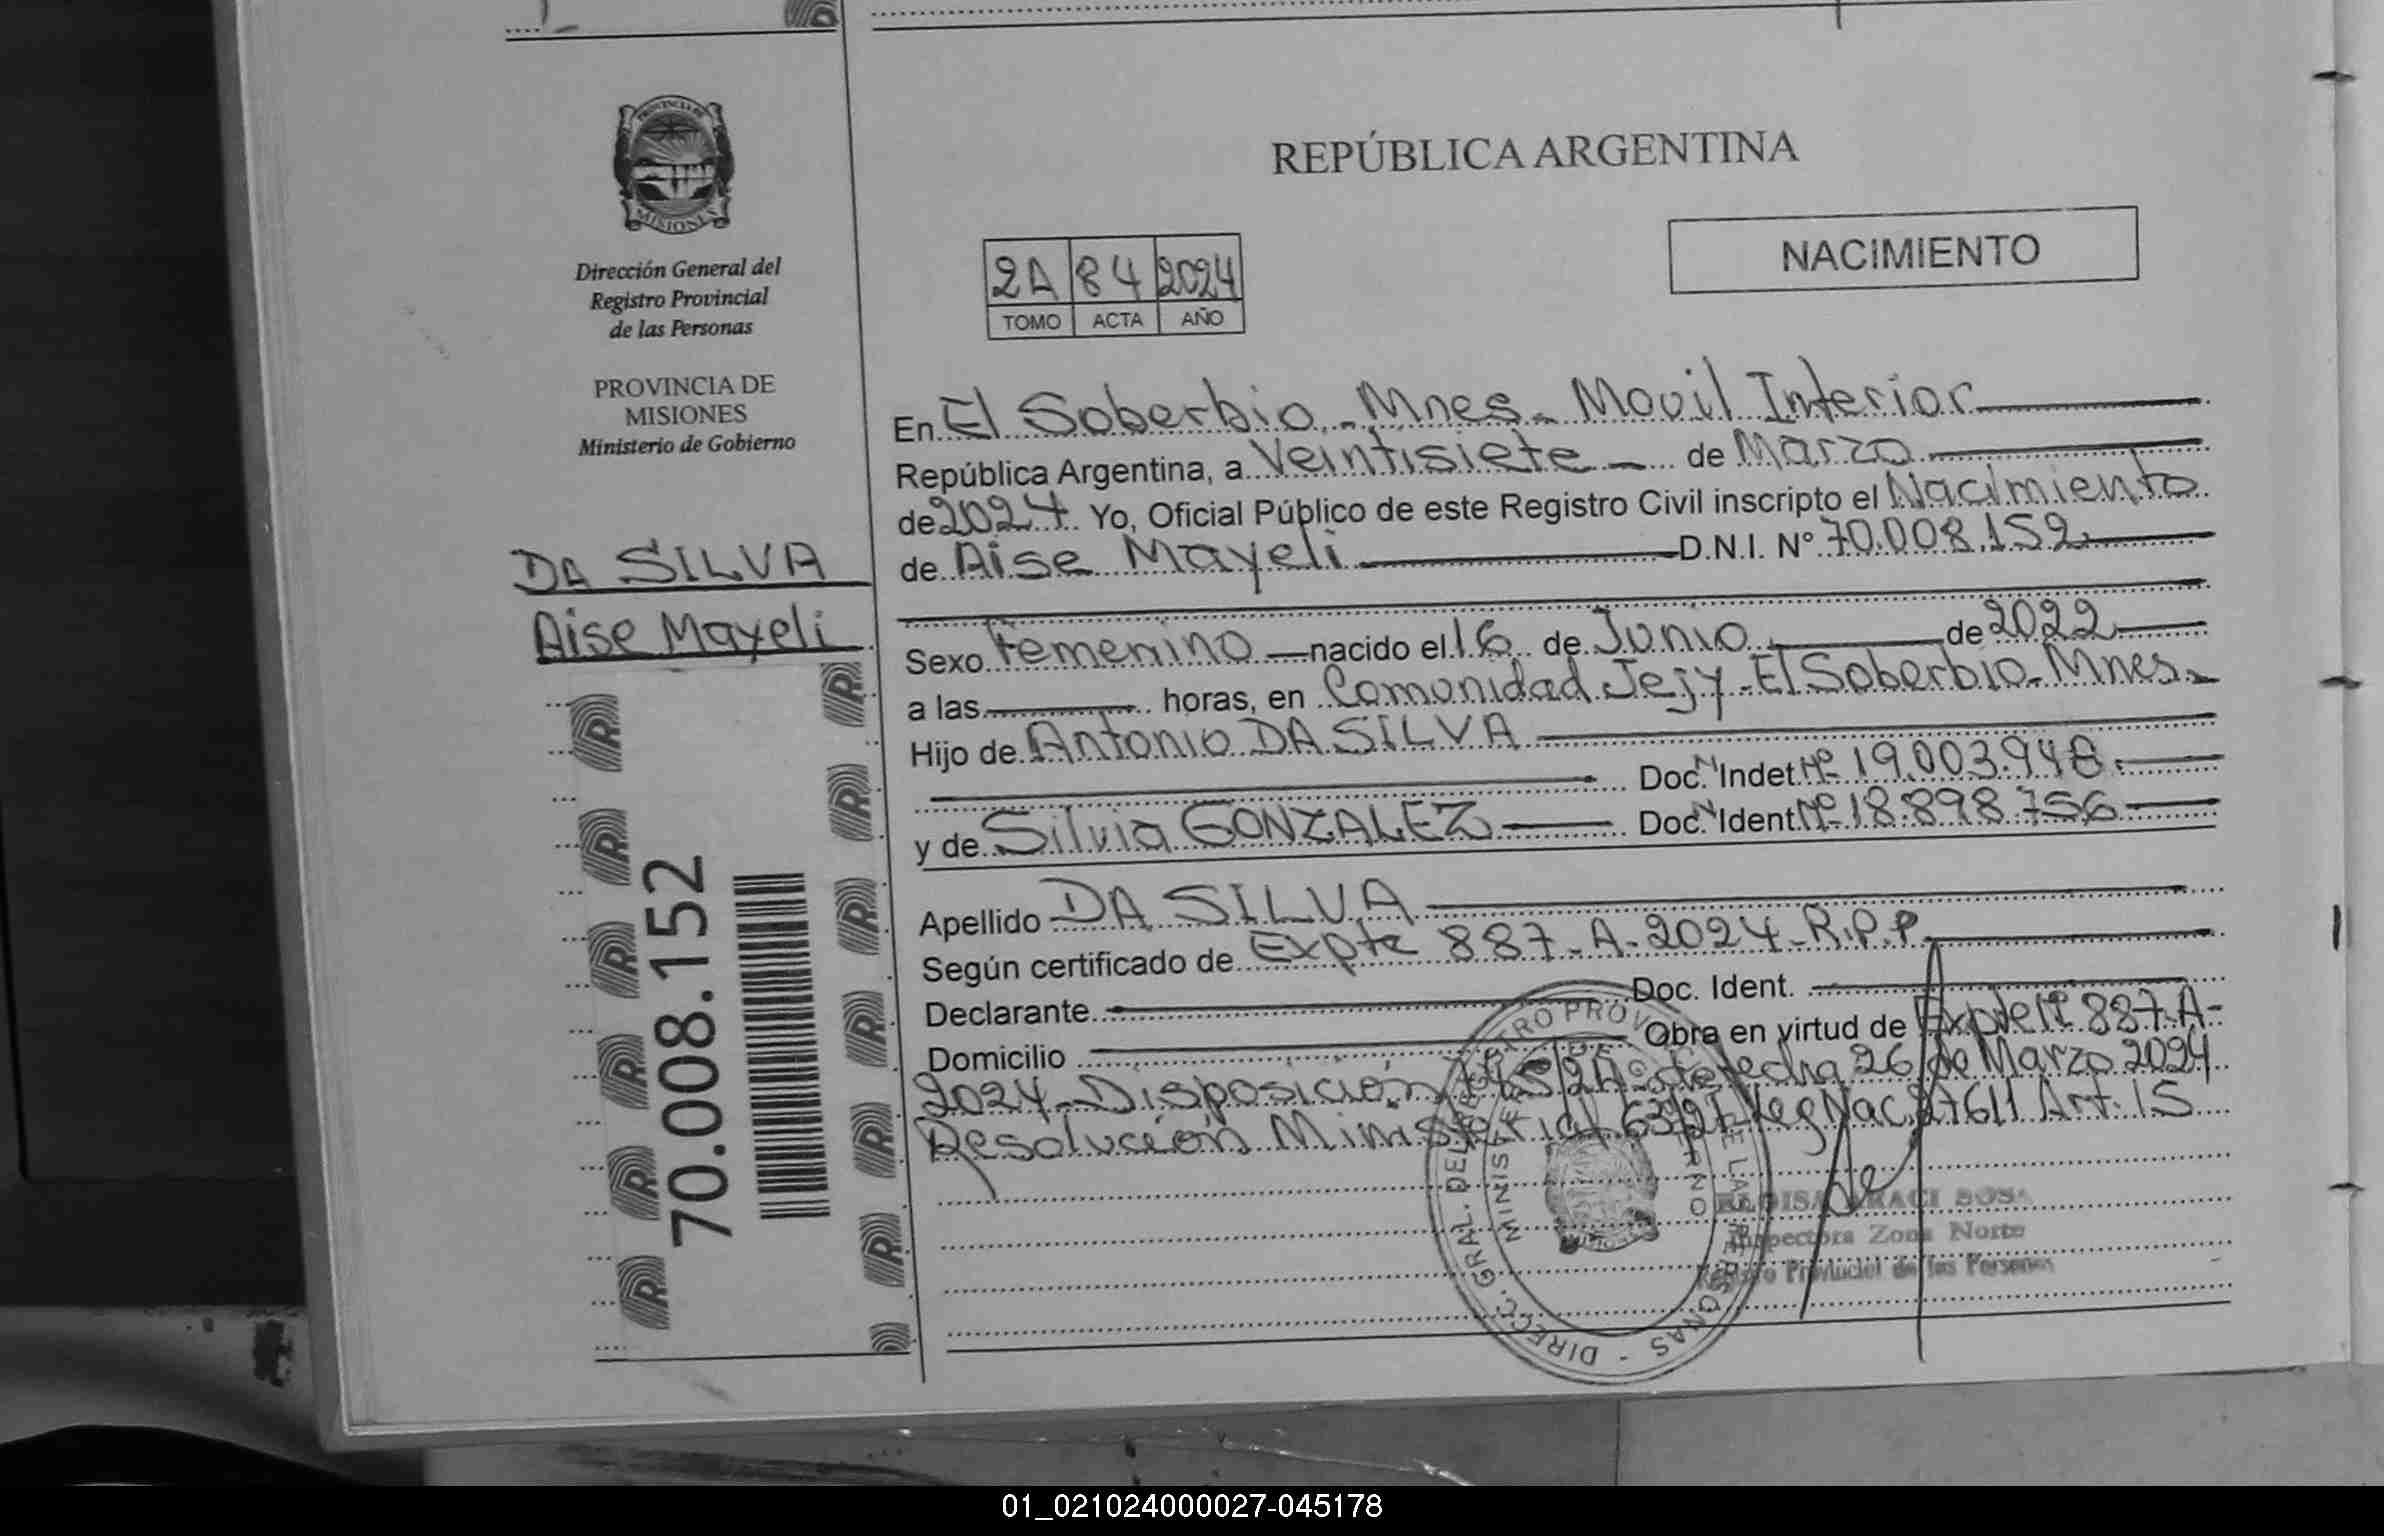 PROVINCIA DE
MISIONES
Dirección General del
Registro Provincial
de las Personas
PROVINCIA DE
MISIONES
Ministerio de Gobierno
DA SILVA
Aise Mayeli
70.008.152
REPÚBLICA ARGENTINA
NACIMIENTO
2A 84 2024
TOMO ACTA AÑO
En El Soberbio - Mnes - Movil Interior
República Argentina, a Veintisiete - de Marzo
de 2024. Yo, Oficial Público de este Registro Civil inscripto el Nacimiento
de Aise Mayeli D.N.I. N° 70.008.152
Sexo Femenino nacido el 16 de Junio de 2022
a las horas, en Comunidad Jejy - El Soberbio - Mnes -
Hijo de Antonio DA SILVA
Doc. Indet Nº 19.003.948
y de Silvia GONZALEZ Doc. Ident. Nº 18.898.756
Apellido DA SILVA
Según certificado de Expte 887-A-2024-R.P.P
Declarante Doc. Ident.
Domicilio Obra en virtud de Expte Nº 887-A-
2024 - Disposición de fecha 26 de Marzo 2024
Resolución Ministerial Leg Nac. 27611 Art. 15
DIREC. GRAL. DEL REGISTRO PROV. DE LAS PERSONAS
ARACI SOSA
Inspectora Zona Norte
Registro Provincial de las Personas
01_021024000027-045178